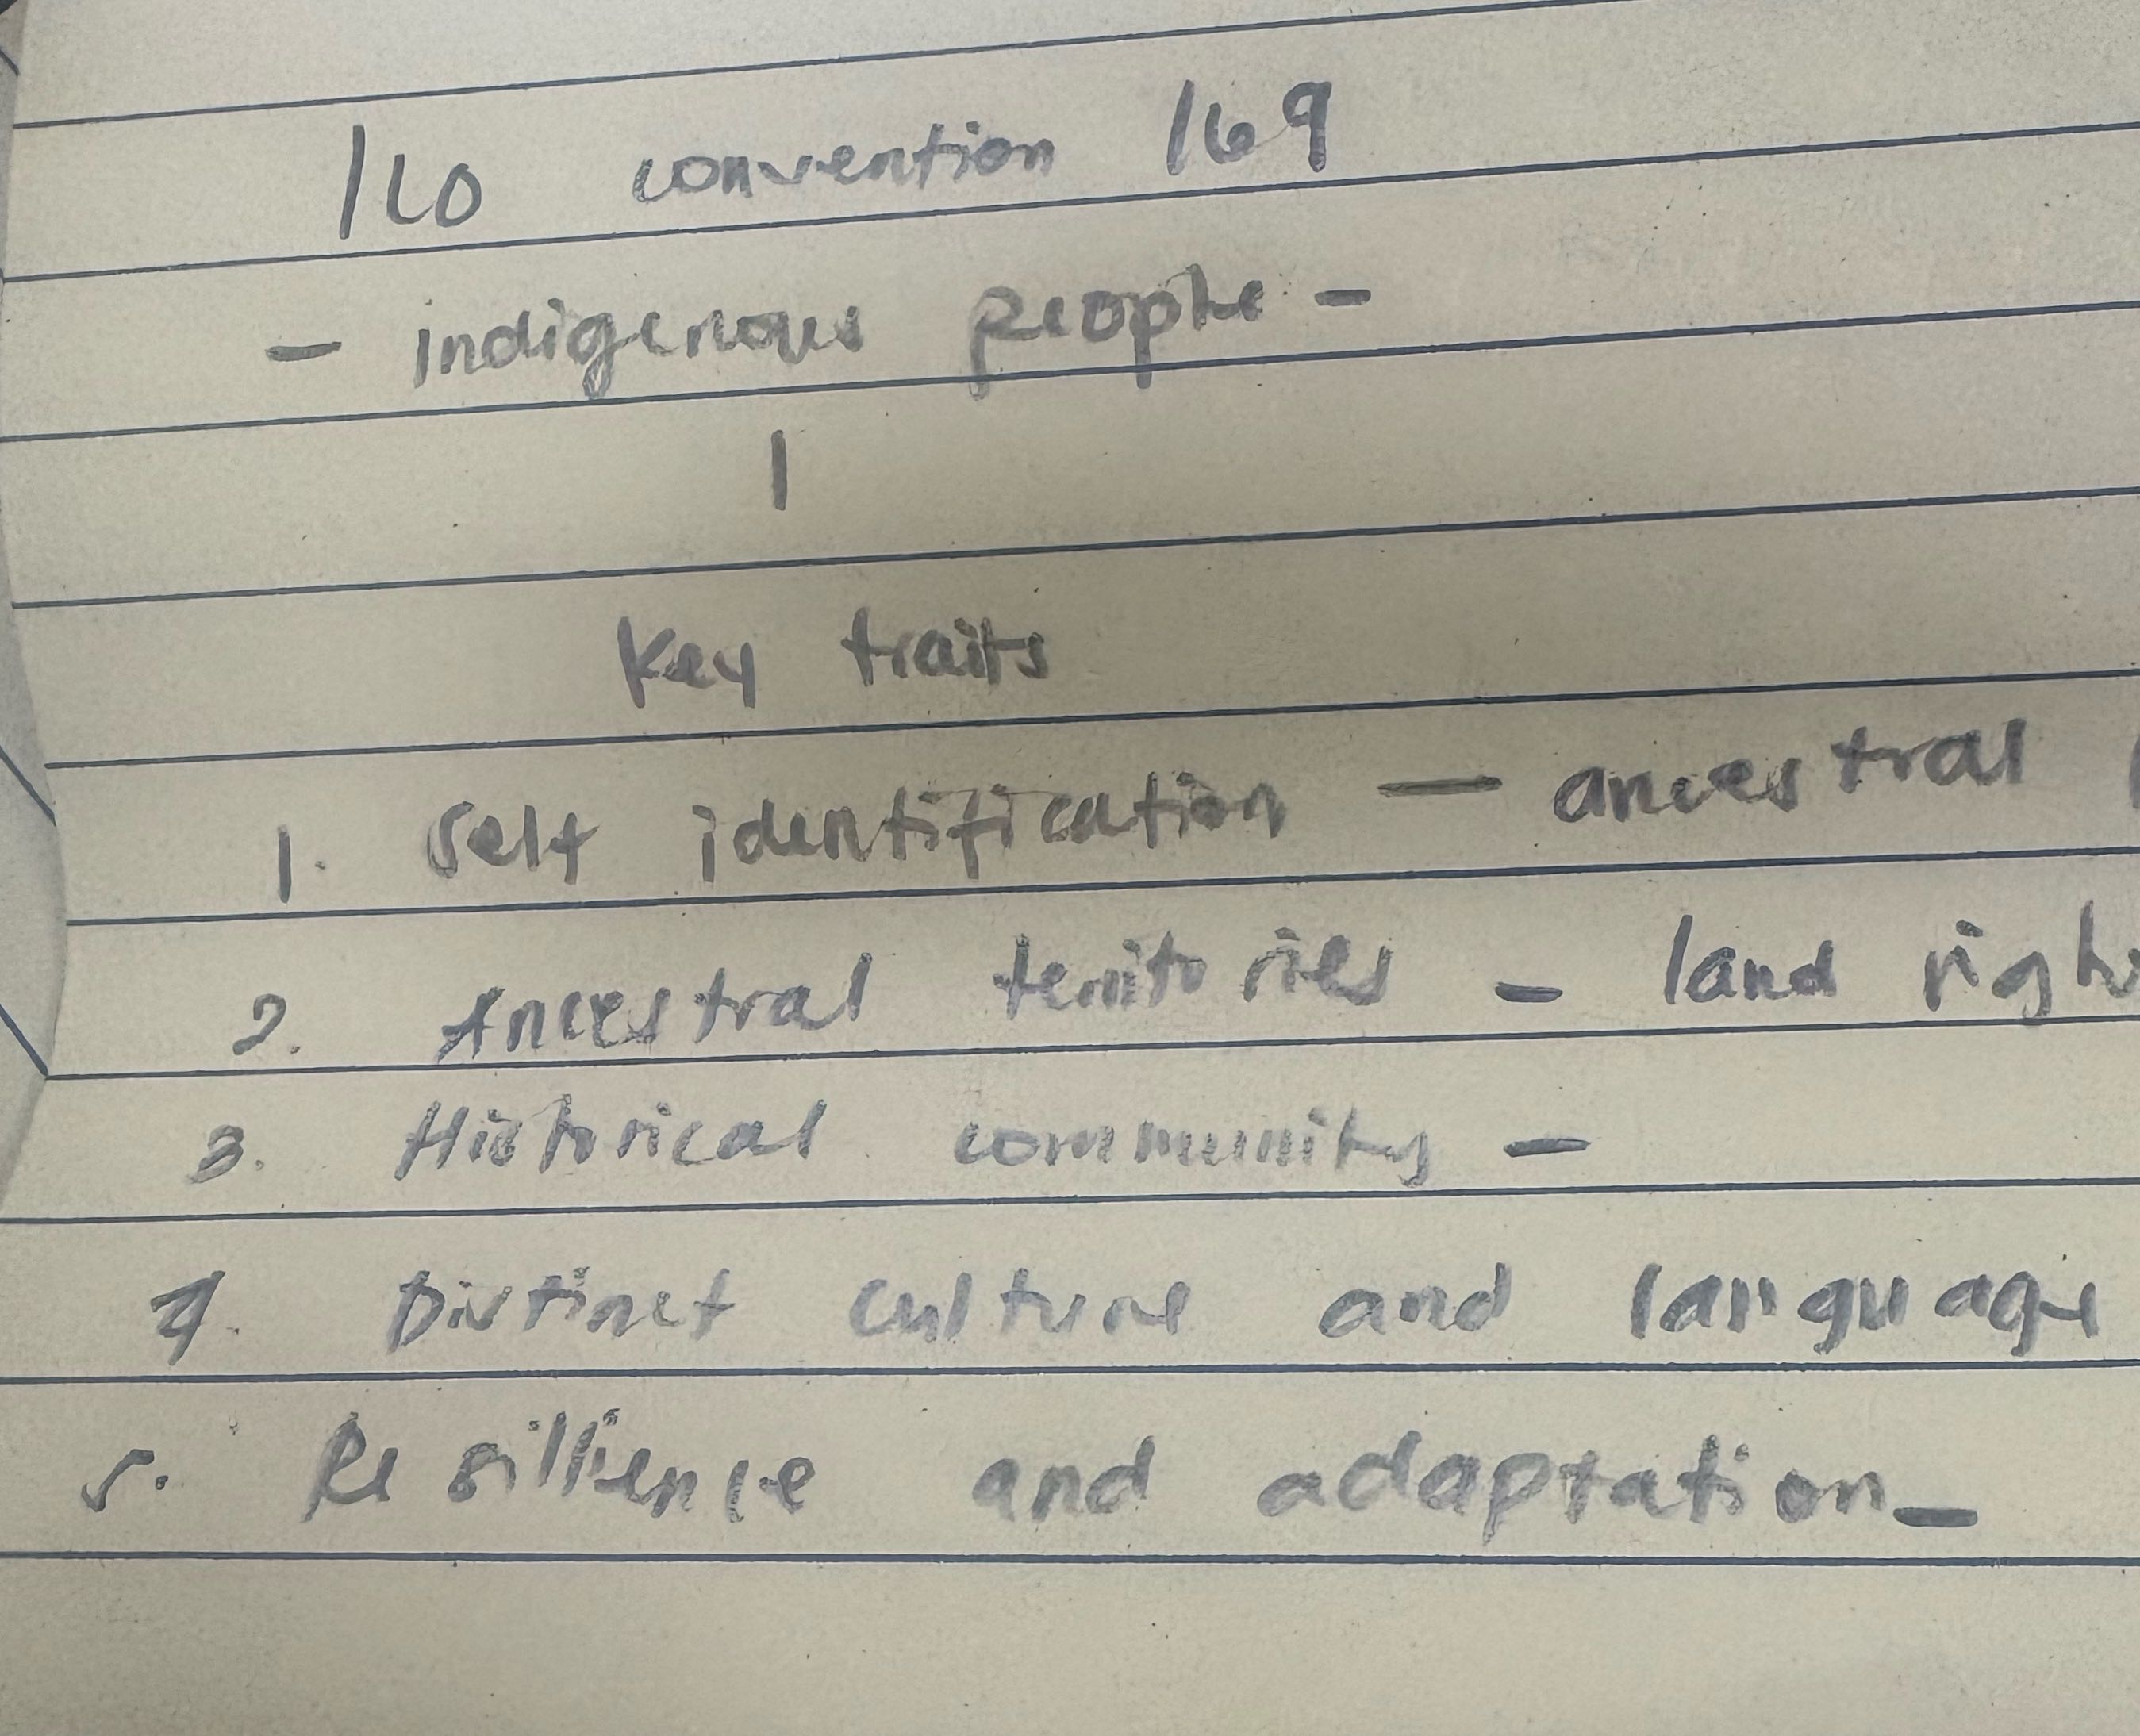 ILO convention 169
- indigenous people -
|
Key traits
1. Self identification — ancestral
2. Ancestral territories - land right
3. Historical community -
4. Distinct culture and language
5. Resillience and adaptation -